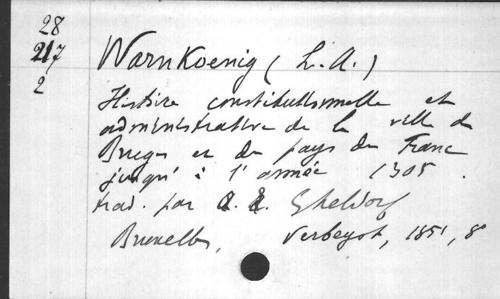 28
217
2
Warnkoenig (L. A.)
Histoire constitutionnelle et
administrative de la ville de
Bruges et du pays du Franc
jusqu'à l'année 1305.
trad. par A. E. Gheldorf
Bruxelles, Verbeyst, 1851, 8°